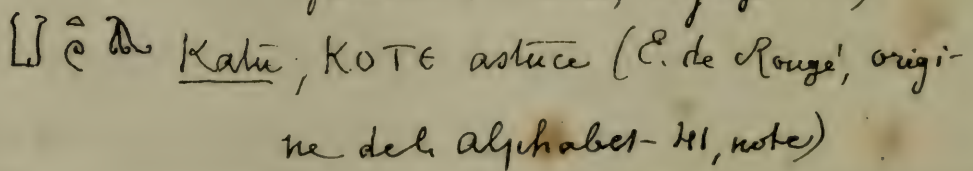 Katu, ⲔⲞⲦⲈ astuce (E. de Rougé, origi-
ne de l'alphabet- 41, note)